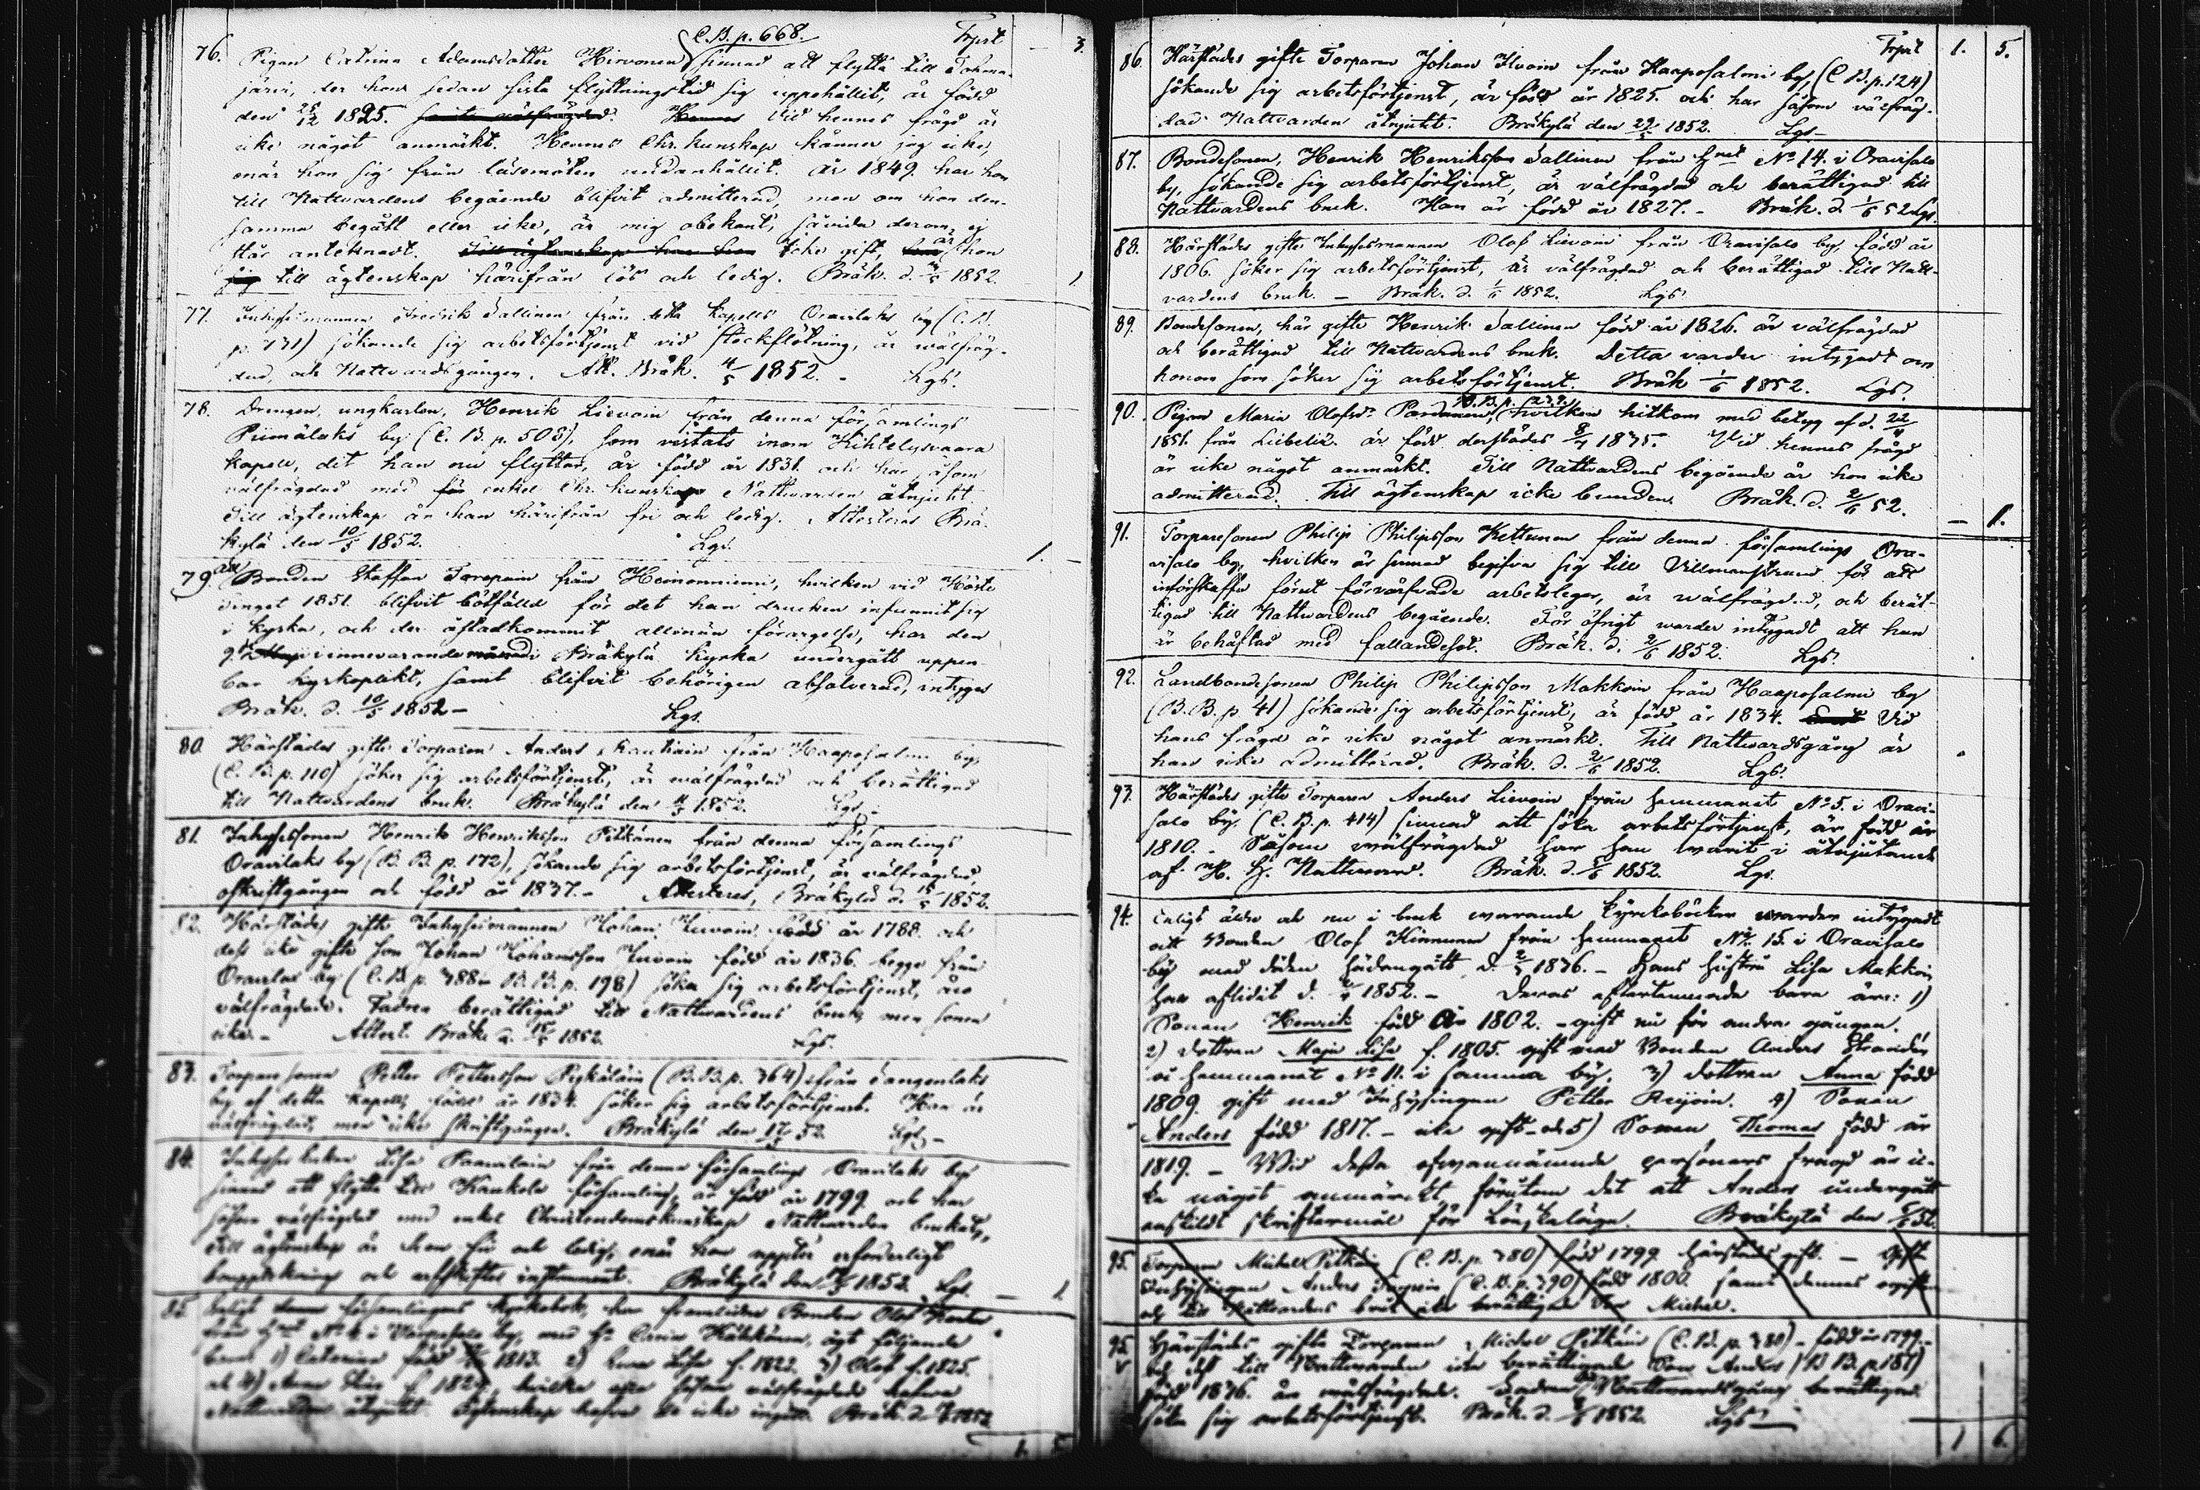 C.B. p. 668. Trpst 3.
76. Pigan Catrina Adamsdotter Hirvonen sinnad att flytta till Tohma-
järvi, der hon sedan sista flyttningstid sig uppehållit, är född
den 25/12 1825. Hennes Vid hennes frägd är
icke något anmärkt. Hennes Chr. kunskap känner jag icke,
enär hon sig från läsemöten undanhållit. År 1849 har hon
till Nattvardens begående blifvit admitterad, men om hon den-
samma begått eller icke, är mig obekant, såvida derom ej
står antecknadt. Till ägtenskap har hon Icke gift, är hon
till ägtenskap härifrån lös och ledig. Bräk. d. 1852. 1
77. Inhysesmannen Fredrik Sallinen från detta Kapells Oravilaks by (C.B.
p. 431) sökande sig arbetsförtjenst vid stockflötning, är wälfräg-
dad, och Nattvardsgången. Att. Bräk. 4/5 1852. - Lgs.
78. Drengen, ungkarlen, Henrik Lievoin från denna församlings
Piimälaks by (C.B. p. 508), som vistats inom Kihtelysvaara
kapell, dit han nu flyttar, är född år 1831. och har såsom
välfrägdad med enkel Chr. kunskap Nattvarden åtnjutit.
Till ägtenskap är han härifrån fri och ledig. Attesteras Brä-
kylä den 10/5 1852. Lgs. 1.
79. Att Bonden Staffan Torpain från Heinoniemi, hvilken vid Höste
tinget 1851. blifvit bötfälld för det han drucken infunnit sig
i kyrka, och der åstadkommit allmän förargelse, har den
9. i innevarande månad i Bräkylä kyrka undergått uppen-
bar kyrkoplikt, samt blifvit behörigen absolverad, intygas
Bräk. d. 10/5 1852 - Lgs.
80. Härstädes gifte Torparen Anders Kautiain från Haaposalmi by
(C.B. p. 110) söker sig arbetsförtjenst, är wälfrägdad och berättigad
till Nattvardens bruk. Bräkylä den 1852. Lgs -
81. Inhysessonen Henrik Henriksson Pitkänen från denna församlings
Oravilaks by (B.B. p. 172), sökande sig arbetsförtjenst, är välfrägdad,
oskriftgången och född år 1837. - Attesteras, Bräkylä d. 15/5 1852.
82. Härstädes gifte Inhysesmannen Johan född år 1788. och
dess icke gifte son Johan Johansson född år 1836. begge från
Oravilaks by (C.B. p. 388 - B.B. p. 198) söka sig arbetsförtjenst, äro
välfrägdade. Fadren berättigad till Nattvardens bruk, men sonen
icke. - Attest. Bräk. d. 15/5 1852. Lgs.
83. Torpare sonen Petter Pettersson (B.B. p. 364) från Sangenlaks
by af detta kapell, född år 1834. söker sig arbetsförtjenst. Han är
välfrägdad, men icke skriftgången. Bräkylä den 17/5 52. Lgs -
84. Inhyses Lisa från denna församlings Oravilaks by
sinnad att flytta till församling, är född år 1799. och har
såsom välfrägdad med enkel Christendomskunskap Nattvarden brukat,
Till ägtenskap är hon fri och ledig, enär hon uppter erforderligt
och afskiftes instrument. Bräkylä den 1852. Lgs. - 1
85. Enligt församlingens kyrkobok, har framlidne Bonden Olof
från Hmt No i by, med Hu Carin ägt följande
barn 1) Catarina född 1813. 2) Lisa f. 1822. 3) Olof f. 1825.
och 4) Anna f. 182 hvilka alla såsom välfrägdade hafva
Nattvarden åtnjutit. Ägtenskap hafva de icke ingått. Bräk. d. 1852
1. 5.
Trpst 1. 5.
86. Härstädes gifte Torparen Johan Ilvoin från Haaposalmi by (C.B. p. 124)
sökande sig arbetsförtjenst, är född år 1825. och har såsom välfräg-
dad Nattvarden åtnjutit. Bräkylä den 29/5 1852. Lgs -
87. Bondesonen, Henrik Henriksson Sallinen från Hmt No 14. i Oravisalo
by, sökande sig arbetsförtjenst, är välfrägdad och berättigad till
Nattvardens bruk. Han är född år 1827. - Bräk. d. 1/6 52 Lgs.
88. Härstädes gifte Inhysesmannen Olof Lievoin från Oravisalo by, född år
1806. söker sig arbetsförtjenst, är välfrägdad och berättigad till Natt-
vardens bruk. - Bräk. d. 1/6 1852. Lgs.
89. Bondesonen, här gifte Henrik Sallinen född år 1826. är välfrägdad
och berättigad till Nattvardens bruk. Detta varder intygadt om
honom som söker sig arbetsförtjenst. Bräk 1/6 1852. Lgs.
90. Pigan Maria Olofsdr Pardanen, hvilken hitkom med betyg af d. 22/4
1851. från Libelitz. är född derstädes 8/7 1835. Vid hennes frägd
är icke något anmärkt. Till Nattvardens begående är hon icke
admitterad. Till ägtenskap icke bunden. Bräk. d. 2/6 52. - 1.
91. Torparesonen Philip Philipsson Kettunen från denna församlings Ora-
visalo by, hvilken är sinnad begifva sig till Villmanstrand för att
införskaffa förut förvärfvade arbetslega, är wälfrägdad, och berät-
tigad till Nattvardens begående. För öfrigt warder intygadt att han
är behäftad med fallandesot. Bräk. d. 2/6 1852. Lgs.
92. Landbondesonen Philip Philipsson Makkoin från Haaposalmi by
(B.B. p 41) sökande sig arbetsförtjenst, är född år 1834. Vid
hans frägd är icke något anmärkt. Till Nattvardsgång är
han icke admitterad. Bräk. d. 2/6 1852. Lgs.
93. Härstädes gifte Torparen Anders Lievoin från hemmanet No 5. i Oravi-
salo by (C.B. p. 414) sinnad att söka arbetsförtjenst, är född år
1810. - Såsom wälfrägdad har han warit i åtnjutande
af H. H. Nattward. Bräk. d. 5/6 1852. Lgs.
94. Enligt äldre och nu i bruk warande kyrkoböcker warder intygadt
att Bonden Olof Kinnunen från hemmanet No 15. i Oravisalo
by med döden hädangått d. 1836. - Hans hustru Lisa Makkoin
har aflidit d. 1852. - Deras efterlemnade barn äro: 1)
Sonen Henrik född år 1802. - gift nu för andra gången.
2) dottren Maja Lisa f. 1805. gift med Bonden Anders Strandén
å hemmanet No 11. i samma by, 3) dottren Anna född
1809. gift med Inhysingen Petter Reijoin. 4) Sonen
Anders född 1817. - icke gift - och 5) Sonen Thomas född år
1819. - Wid dessa ofwannämnde personers frägd är ic-
ke något anmärckt, förutom det att Anders undergått
enskildt skriftermål för Lönskaläge. Bräkylä den 52.
95. Torparen Michel Pitkäin (C.B. p. 380) född 1799 härstädes gift. - Gift
Inhysingen Anders (C.B. p. 390) född 1800. samt dennes ogifte
och till Nattvardens bruk icke berättigade Son Michel.
95. Härstädes gifte Torparen Michel Pitkäin (C.B. p. 380) - född år 1799 -
och dess till Nattvarden icke berättigade Son Anders (B.B. p. 187)
född 1836. äro wälfrägdade. Fadren Nattwardsgång berättigad.
söka sig arbetsförtjenst. Bräk. d. 1852. Lgs -
1 6.